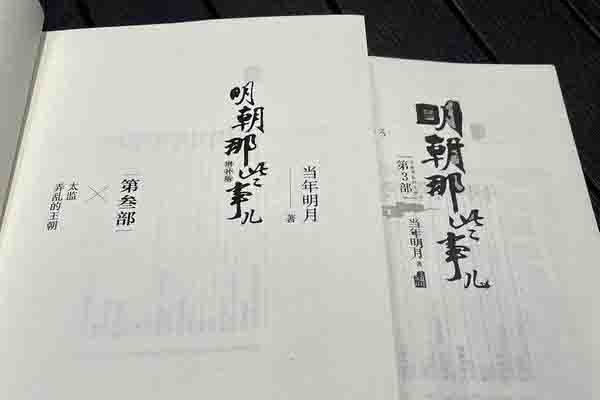 明朝那些事儿
增补版
当年明月 著
第叁部
×
太监
弄乱的王朝
明朝那些事儿
第3部
当年明月 著